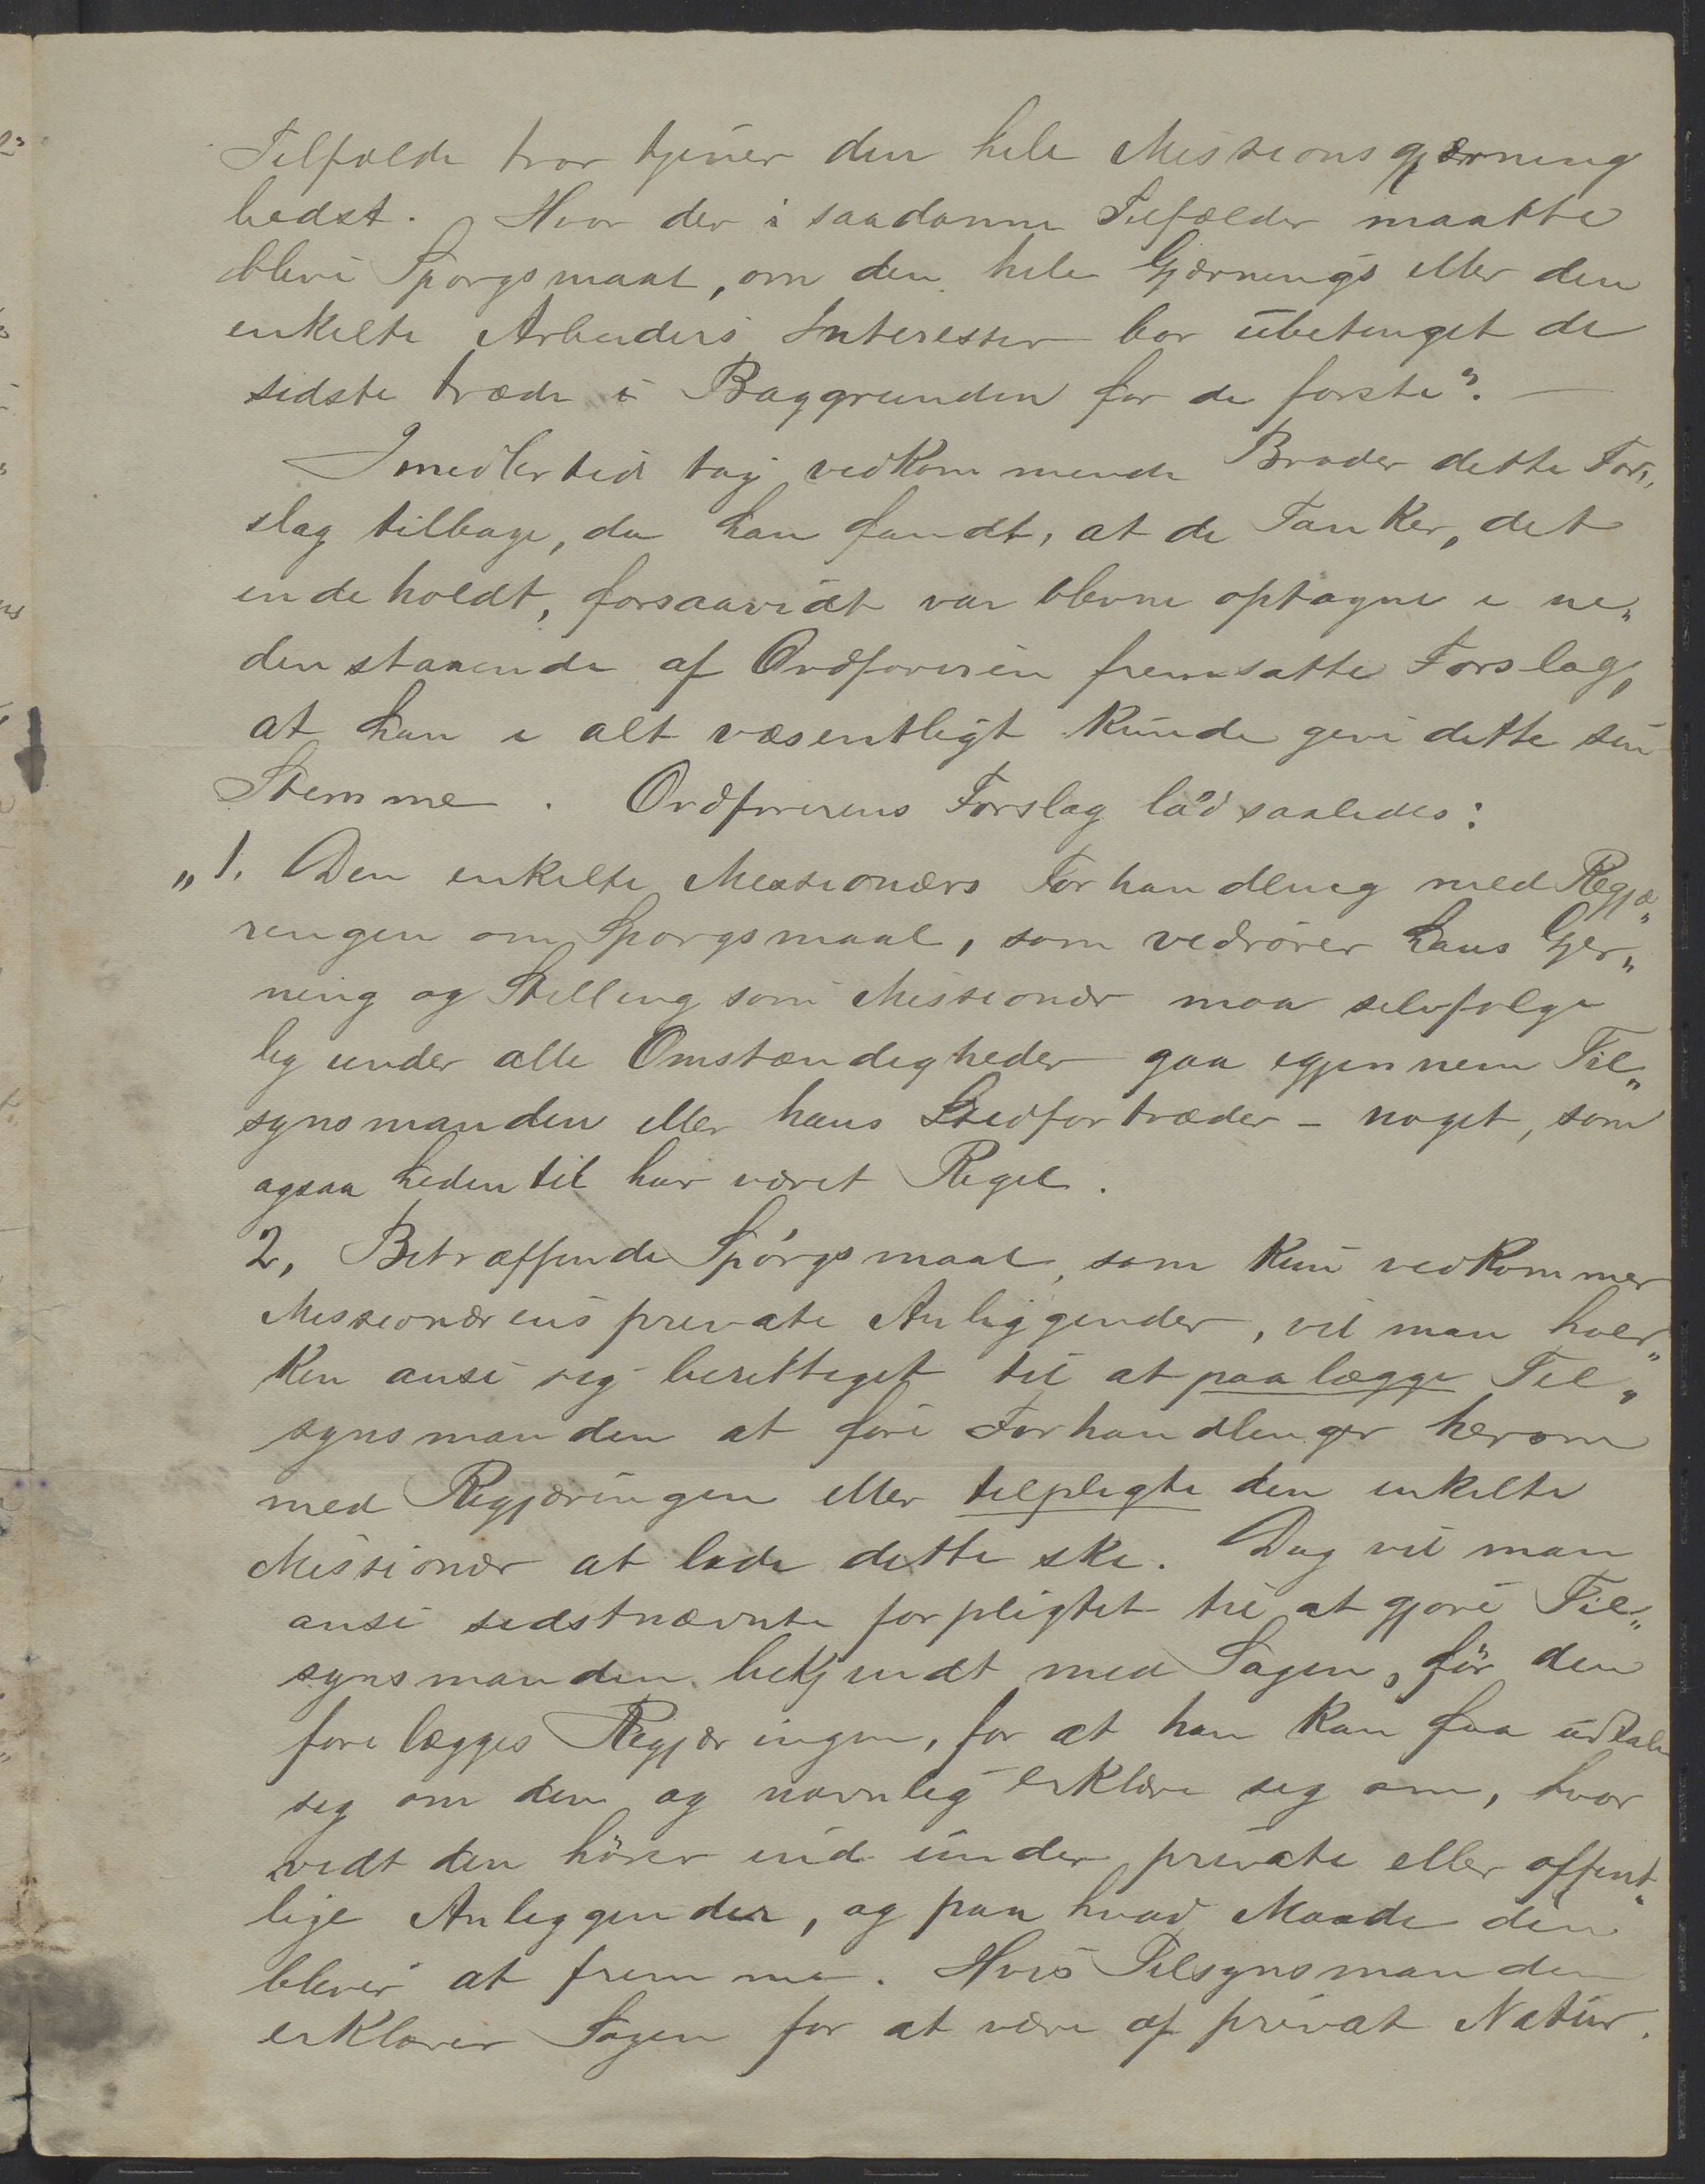 Tilfælde tror tjener den hele Missionsgjærning
bedst. Hvor der i saadanne Tilfælder maatte
blive Spørgsmaal, om den hele Gjærnings eller den
enkelte Arbeiders Interesser bør ubetinget de
sidste træde i Baggrunden for de første".—
Imedlertid tog vedkommende Broder dette For„
slag tilbage, da han fandt, at de Tanker, det
indeholdt, forsaavidt var blevne optagne i ne„
denstaaende af Ordføreren fremsatte Forslag,
at han i alt væsentligt kunde give dette sin
Stemme. Ordførerens Forslag lød saaledes:
„1. Den enkelte Missionærs Forhandling med Regjæ„
ringen om Spørgsmaal, som vedrører hans Gjer„
ning og Stilling som Missionær maa selvfølge
lig under alle Omstændigheder gaa igjennem Til„
synsmanden eller hans Stedfortræder – noget, som
ogsaa hidentil har været Regel.
2, Betræffende Spørgsmaal, som kun vedkommer
Missionærens private Anliggender, vil man hver„
ken anse sig berettiget til at paalægge Til„
synsmanden at føre Forhandlinger herom
med Regjæringen eller tilpligte den enkelte
Missionær at lade dette ske. Dog vil man
anse sidstnævnte forpligtet til at gjøre Til„
synsmanden bekjendt med Sagen, før den
forelægges Regjæringen, for at han kan faa udtale
sig om den og navnlig erklære sig om, hvor
vidt den hører ind under private eller offent„
lige Anliggender, og paa hvad Maade den
bliver at fremme. Hvis Tilsynsmanden
erklærer Sagen for at være af privat Natur.